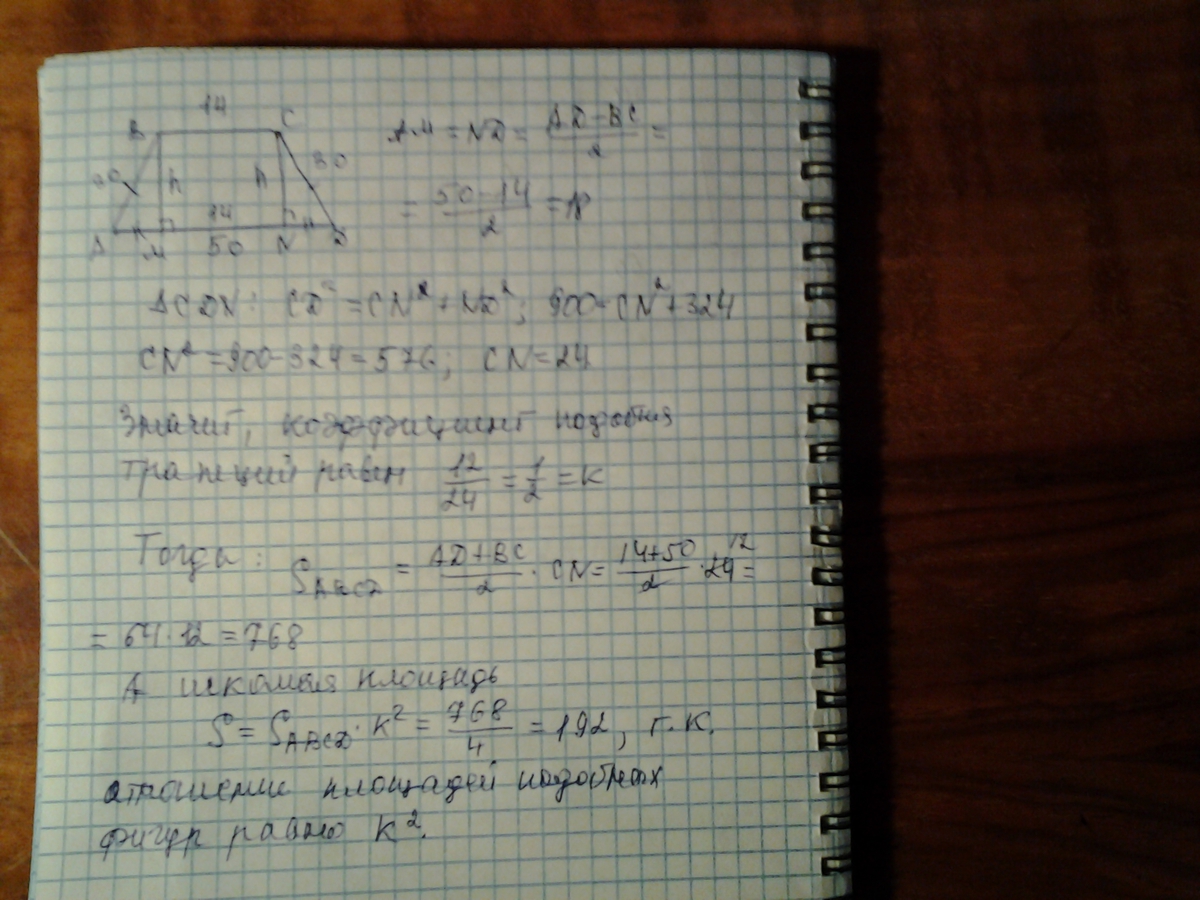 14
B C
AM = ND = (AD - BC)/2 =
30
h h
= (50-14)/2 = 18
14
A M 50 N D
ΔCDN: CD² = CN² + ND²; 900 = CN² + 324
CN² = 900 - 324 = 576; CN = 24
Значит, коэффициент подобия
трапеций равен 12/24 = 1/2 = K
Тогда: S_ABCD = (AD + BC)/2 · CN = (14+50)/2 · 24 12 =
= 64 · 12 = 768
А искомая площадь
S = S_ABCD · K² = 768/4 = 192, т.к.
отношение площадей подобных
фигур равно K².